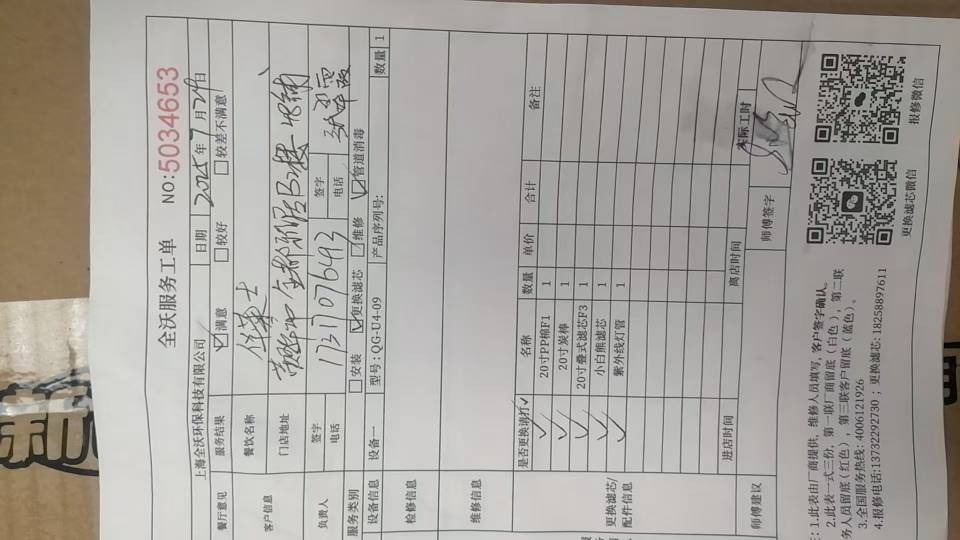 全沃服务工单
NO:5034653
上海全沃环保科技有限公司 日期 2025年7月29日
餐厅意见 服务结果 ☑满意 □较好 □较差不满意
客户信息 餐饮名称 华莱士
门店地址
负责人 签字 签字
电话 17317076493 电话
服务类别 □安装 ☑更换滤芯 ☑维修 ☑管道消毒
设备信息 设备一 型号:QG-U4-09 产品序列号: 数量 1
检修信息
维修信息
更换滤芯/配件信息
是否更换请打✓ 名称 数量 单价 合计 备注
✓ 20寸PP棉F1 1
✓ 20寸炭棒 1
✓ 20寸叠式滤芯F3 1
✓ 小白熊滤芯 1
✓ 紫外线灯管 1
进店时间 离店时间 实际工时
师傅建议 师傅签字
1.此表由厂商提供，维修人员填写，客户签字确认。
2.此表一式三份，第一联厂商留底（白色），第二联
务人员留底（红色），第三联客户留底（蓝色）。
3.全国服务热线：4006121926
4.报修电话:13732292730；更换滤芯：18258897611
更换滤芯微信
报修微信
新